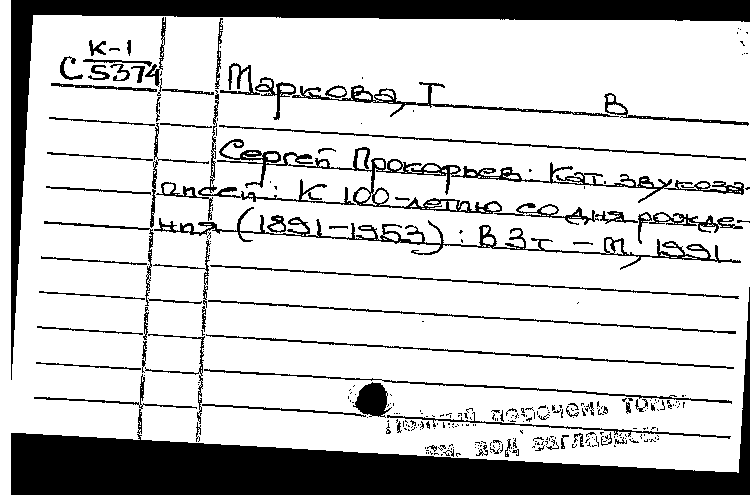 К-1
С 5374
Маркова, Т В
Сергей Прокофьев: Кат. звукоза-
писей: К 100-летию со дня рожде-
ния (1891-1953): В 3 т. - М, 1991
Полный перечень томов
см. под заглавием